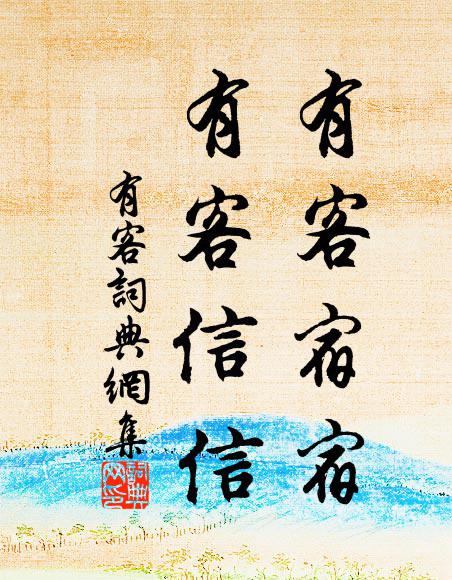 有客宿宿
有客信信
有客詞典網集